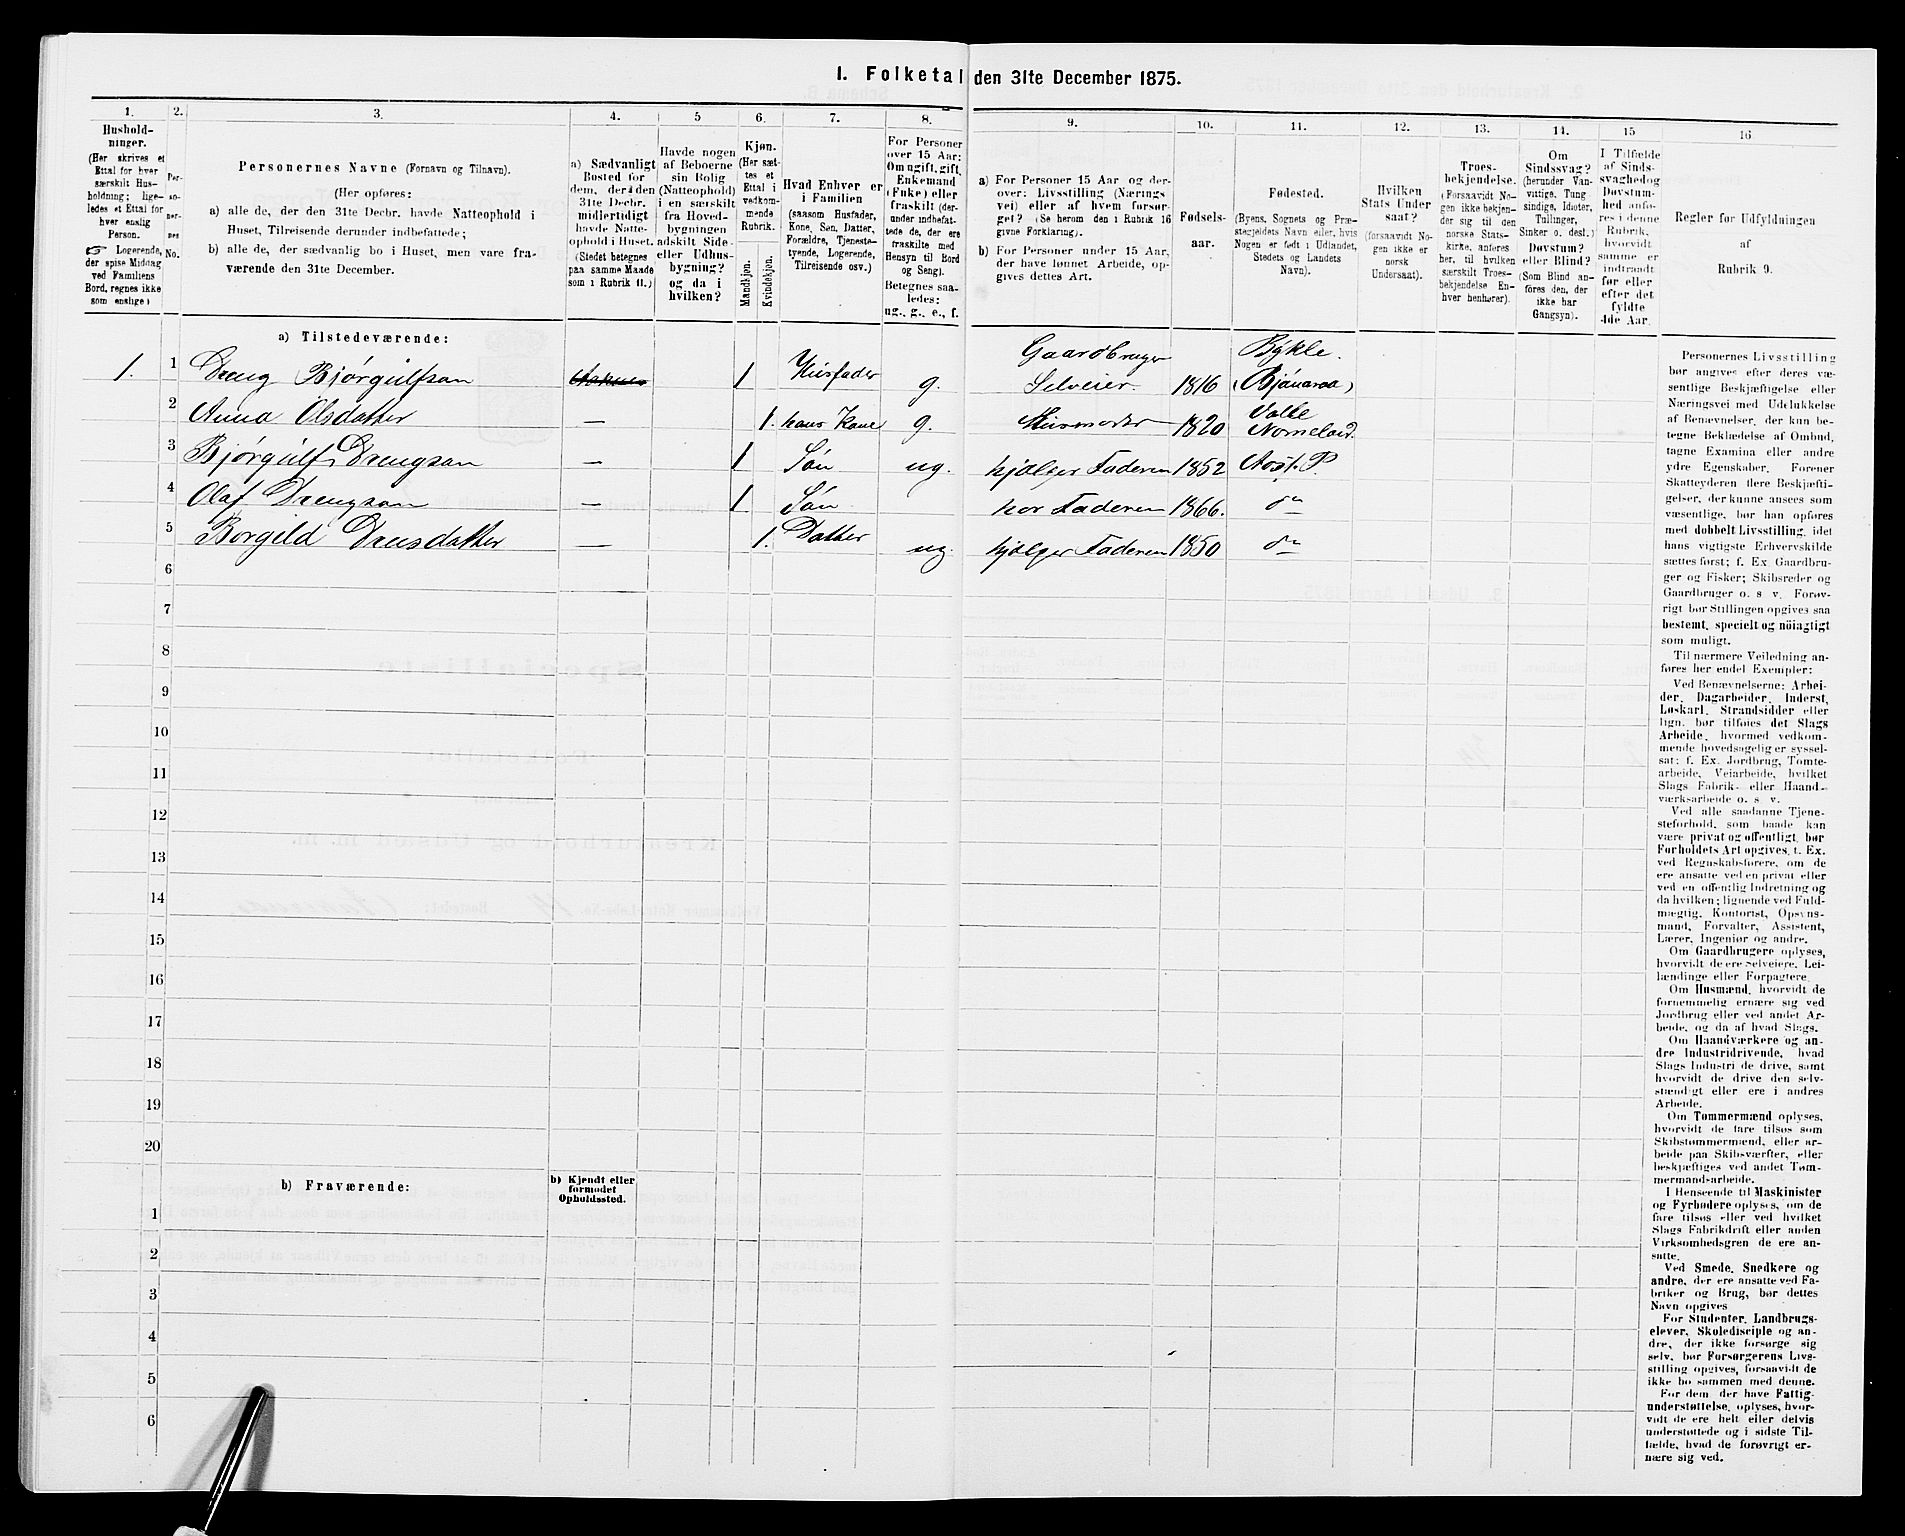 I. Folketal den 31te December 1875.
1.
Hushold-
ninger.
(Her skrives et
Ettal for hver
særskilt Hus-
holdning; lige-
ledes et Ettal for
hver enslig
Person.
☞ Logerende,
der spise Middag
ved Familiens
Bord, regnes ikke
som enslige)
2.
Per-
so-
ner-
nes
No.
3.
Personernes Navne (Fornavn og Tilnavn).
(Her opføres:
a) alle de, der den 31te Decbr. havde Natteophold i
Huset, Tilreisende derunder indbefattede;
b) alle de, der sædvanlig bo i Huset, men vare fra-
værende den 31te December.
4.
a) Sædvanligt
Bosted for
dem, der den
31te Decbr.
midlertidigt
havde Natte-
ophold i Huset.
(Stedet betegnes
paa samme Maade
som i Rubrik 11.)
5
Havde nogen
af Beboerne
sin Bolig
(Natteophold)
i en særskilt
fra Hoved-
bygningen
adskilt Side-
eller Udhus-
bygning?
og da i
hvilken?
6.
Kjøn.
(Her sæt-
tes et
Ettal i
vedkom-
mende
Rubrik.
Mandkjøn.
Kvindekjøn.
7.
Hvad Enhver er
i Familien
(saasom Husfader,
Kone, Søn, Datter,
Forældre, Tjeneste-
tyende, Logerende,
Tilreisende osv.)
8.
For Personer
over 15 Aar:
Om ugift, gift,
Enkemand
(Enke) eller
fraskilt (der-
under indbefat-
tede de, der ere
fraskilte med
Hensyn til Bord
og Seng).
Betegnes saa-
ledes:
ug., g., e., f.
9.
a) For Personer 15 Aar og der-
over: Livsstilling (Nærings-
vei) eller af hvem forsør-
get? (Se herom den i Rubrik 16
givne Forklaring).
b) For Personer under 15 Aar,
der have lønnet Arbeide, op-
gives dettes Art.
10.
Fødsels-
aar.
11.
Fødested.
(Byens, Sognets og Præ-
stegjeldets Navn eller, hvis
Nogen er født i Udlandet,
Stedets og Landets
Navn).
12.
Hvilken
Stats Under
saat?
(forsaavidt No-
gen ikke er
norsk
Undersaat).
13.
Troes-
bekjendelse.
(Forsaavidt No-
gen ikke bekjen-
der sig til den
norske Stats-
kirke, anføres
her, til hvilken
særskilt Troes-
bekjendelse En-
hver henhører).
14.
Om
Sindssvag?
(herunder Van-
vittige, Tung
sindige, Idioter,
Tullinger,
Sinker o. desl.)
Døvstum?
eller Blind?
(Som Blind an-
føres den, der
ikke har
Gangsyn).
15
I Tilfælde
af Sinds-
svaghed og
Døvstum-
hed anfø-
res i denne
Rubrik,
hvorvidt
samme er
indtraadt
før eller
efter det
fyldte
4de Aar.
16
Regler for Udfyldningen
af
Rubrik 9.
a) Tilstedeværende:
1. 1 Dreng Bjørgulfson 1 Husfader g. Gaardbruger Selveier 1816 Bykle. (Bjønaraa)
2 Anna Olsdatter — 1. hans Kone g. Husmoder 1820 Valle Nomeland.
3 Bjørgulf Drengson — 1 Søn ug. hjælper Faderen 1852 P.
4 Olaf Drengson — 1 Søn hos Faderen 1866. do
5 Borgild Drensdatter — 1. Datter ug. hjælper Faderen 1850 do
6
7
8
9
10
11
12
13
14
15
16
17
18
19
20
b) Fraværende:
b) Kjendt eller
formodet
Opholdssted.
1
2
3
4
5
6
Personernes Livsstilling
bør angives efter deres væ-
sentlige Beskjæftigelse eller
Næringsvei med Udelukkelse
af Benævnelser, der kun be-
tegne Beklædelse af Ombud,
tagne Examina eller andre
ydre Egenskaber. Forener
Skatteyderen flere Beskjæfti-
gelser, der kunne ansees som
væsentlige, bør han opføres
med dobbelt Livsstilling, idet
hans vigtigste Erhvervskilde
sættes først; f. Ex. Gaardbru-
ger og Fisker; Skibsreder og
Gaardbruger o. s v. Forøv-
rigt bør Stillingen opgives saa
bestemt, specielt og nöiagtigt
som muligt.
Til nærmere Veiledning an-
føres her endel Exempler:
Ved Benævnelserne: Arbei-
der, Dagarbeider, Inderst,
Løskarl, Strandsidder eller
lign. bør tilføies det Slags
Arbeide, hvormed vedkom-
mende hovedsagelig er syssel-
sat: f. Ex. Jordbrug, Tomte-
arbeide, Veiarbeide, hvilket
Slags Fabrik- eller Haand-
værksarbeide o. s. v.
Ved alle saadanne Tjene-
steforhold, som baade kan
være privat og offentligt, bør
Forholdets Art opgives, t. Ex.
ved Regnskabsførere, om de
ere ansatte ved en privat eller
ved en offentlig Indretning og
da hvilken; lignende ved Fuld-
mægtig, Kontorist, Opsyns-
mand, Forvalter, Assistent,
Lærer, Ingeniør og andre.
Om Gaardbrugere oplyses,
hvorvidt de ere Selveiere, Lei-
lændinge eller Forpagtere.
Om Husmænd, hvorvidt de
fornemmelig ernære sig ved
Jordbrug eller ved andet Ar-
beide, og da af hvad Slags.
Om Haandværkere og an-
dre Industridrivende, hvad
Slags Industri de drive, samt
hvorvidt de drive den selv-
stændigt eller ere i andres
Arbeide.
Om Tømmermænd oplyses,
hvorvidt de fare tilsøs som
Skibstømmermænd, eller ar-
beide paa Skibsværfter, eller
beskjæftiges ved andet Tøm-
mermand-arbeide.
I Henseende til Maskinister
og Fyrbødere oplyses, om de
fare tilsøs eller ved hvilket
Slags Fabrikdrift eller anden
Virksomhedsgren de ere an-
satte.
Ved Smede, Snedkere og
andre, der ere ansatte ved Fa-
briker og Brug, bør dettes
Navn opgives
For Studenter, Landbrugs-
elever, Skoledisciple og an-
dre, der ikke forsørge sig
selv, bør Forsørgerens Livs-
stilling opgives, forsaavidt de
ikke bo sammen med denne.
For dem der have Fattig-
understøttelse, oplyses, hvor-
vidt de ere helt eller delvis
understøttede og i sidste Til-
fælde, hvad de forøvrigt er-
nære sig ved.